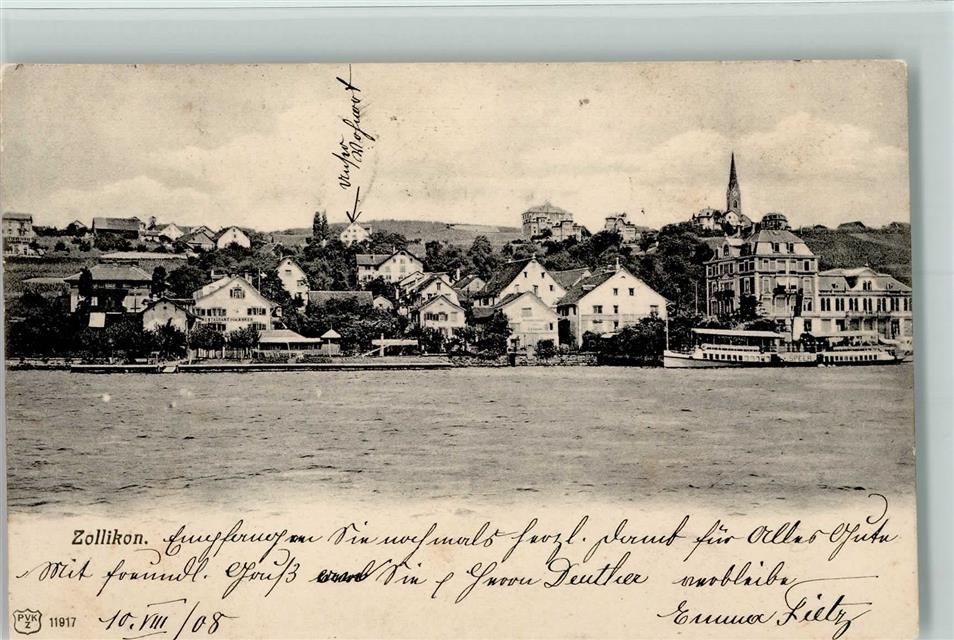 unser
Wohnort
Zollikon.
Empfangen Sie nochmals herzl. Dank für Alles Gute
Mit freundl. Gruß an Sie & Herrn Deuther verbleibe
Emma Fietz
PVK
Z
11917
10. VIII / 08
SPEER